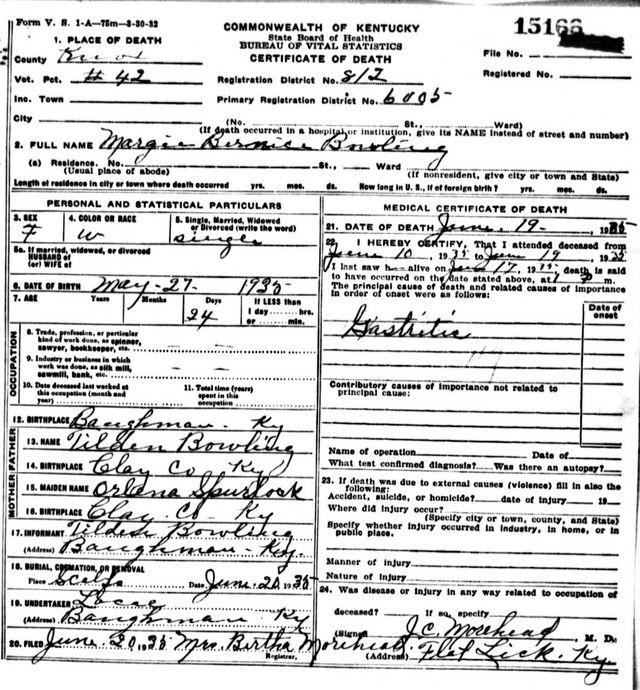 Form V. S. 1-A—75m—3-30-32
COMMONWEALTH OF KENTUCKY
State Board of Health
BUREAU OF VITAL STATISTICS
CERTIFICATE OF DEATH
15166
File No.
Registered No.
1. PLACE OF DEATH
County Knox
Vot. Pct. #42
Inc. Town
City
Registration District No. 812
Primary Registration District No. 6005
(No. St., Ward)
(If death occurred in a hospital or institution, give its NAME instead of street and number)
2. FULL NAME Margie Bernice Bowling
(a) Residence. No. St., Ward
(Usual place of abode) (If nonresident, give city or town and State)
Length of residence in city or town where death occurred yrs. mos. ds. How long in U. S., if of foreign birth? yrs. mos. ds.
PERSONAL AND STATISTICAL PARTICULARS
3. SEX F
4. COLOR OR RACE W
5. Single, Married, Widowed or Divorced (write the word) single
5a. If married, widowed, or divorced
HUSBAND of
(or) WIFE of
6. DATE OF BIRTH May-27- 1935
7. AGE Years Months Days 24
If LESS than
1 day hrs.
or min.
OCCUPATION
8. Trade, profession, or particular
kind of work done, as spinner,
sawyer, bookkeeper, etc.
9. Industry or business in which
work was done, as silk mill,
sawmill, bank, etc.
10. Date deceased last worked at
this occupation (month and
year)
11. Total time (years)
spent in this
occupation
12. BIRTHPLACE Baughman - Ky
FATHER
13. NAME Tilden Bowling
14. BIRTHPLACE Clay Co Ky
MOTHER
15. MAIDEN NAME Orlena Spurlock
16. BIRTHPLACE Clay. Co Ky
17. INFORMANT Tilden Bowling
(Address) Baughman - Ky.
18. BURIAL, CREMATION, OR REMOVAL
Place Scalf Date June 20 1935
19. UNDERTAKER Local
(Address) Baughman Ky
20. FILED June 20 1935 Mrs. Bertha Morehead
Registrar,
MEDICAL CERTIFICATE OF DEATH
21. DATE OF DEATH June - 19 - 1935
22. I HEREBY CERTIFY, That I attended deceased from
June 10, 1935 to June 19, 1935
I last saw h alive on June 17, 1935, death is said
to have occurred on the date stated above, at m.
The principal cause of death and related causes of importance
in order of onset were as follows:
Date of
onset
Gastritis
Contributory causes of importance not related to
principal cause:
Name of operation Date of
What test confirmed diagnosis? Was there an autopsy?
23. If death was due to external causes (violence) fill in also the
following:
Accident, suicide, or homicide? date of injury 19
Where did injury occur?
(Specify city or town, county, and State)
Specify whether injury occurred in industry, in home, or in
public place.
Manner of injury
Nature of injury
24. Was disease or injury in any way related to occupation of
deceased? If so, specify
(Signed) J. C. Morehead, M. D.
(Address) Flat Lick. Ky.